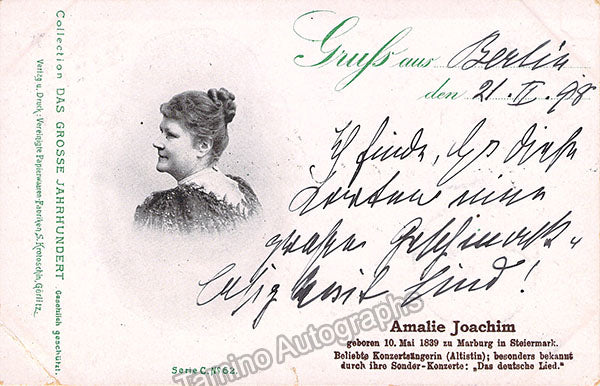 Gruss aus Berlin
den 21. II. 98
Ich finde, daß diese
Karten eine
große Geschmack-
losigkeit sind!
Amalie Joachim
geboren 10. Mai 1839 zu Marburg in Steiermark.
Beliebte Konzertsängerin (Altistin); besonders bekannt
durch ihre Sonder-Konzerte: „Das deutsche Lied.“
Serie C. No 62.
Collection DAS GROSSE JAHRHUNDERT. Gesetzlich geschützt.
Verlag u. Druck: Vereinigte Papierwaren-Fabriken, S. Krotoschin, Görlitz.
Tamino Autographs